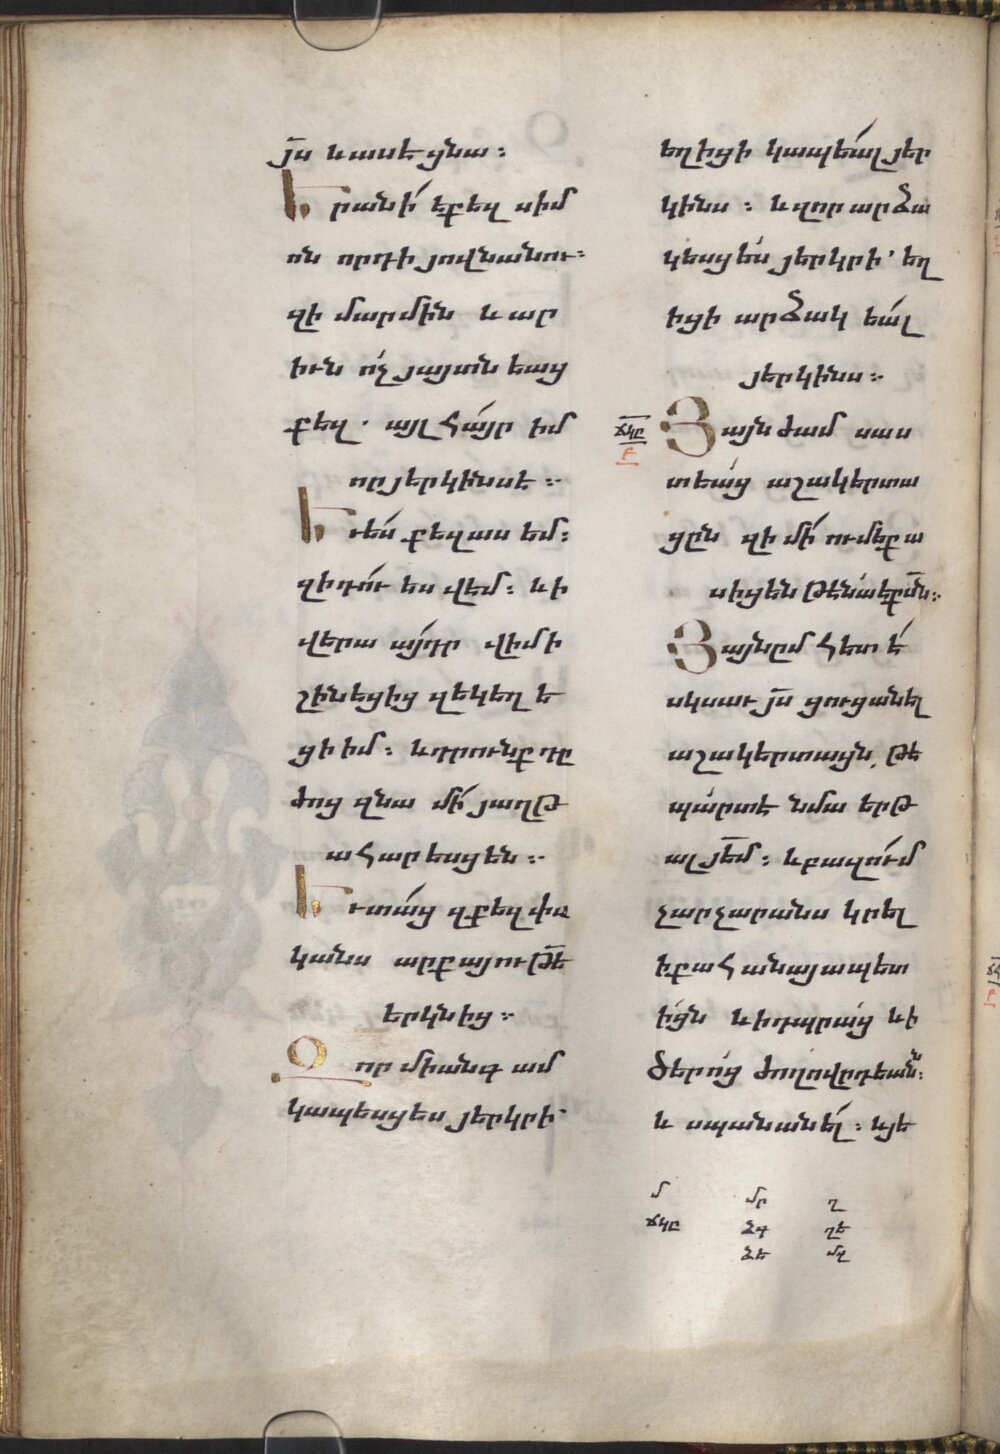 յս̅ և ասէ ցնա։
Երանի՛ էքեզ սիմ
ոն որդի յովնանու։
զի մարմին և ար
իւն ո՛չ յայտնեաց
քեզ· այլ հա՛յր իմ
որ յերկինսէ։
Եւ ե՛ս քեզ ասեմ։
զի դո՛ւ ես վեմ։ և ի
վերա ա՛յդր վիմի
շինեցից զեկեղե
ցի իմ։ և դրունք դը
ժոց զնա մի՛ յաղթ
ահարեսցեն։
Եւ տա՛ց զքեզ փա
կանս արքայութե̅
երկնից։
Օոր միանգամ
կապեսցես յերկրի՝
եղիցի կապեա՛լ յեր
կինս։ և զոր արձա
կեսցե՛ս յերկրի՝ եղ
իցի արձակեա՛լ
յերկինս։
ճկը
բ
Յայնժամ սաս
տեա՛ց աշակերտա
ցըն զի մի՛ ումեք ա
սիցեն թե նա է քմ̅ն։
Յայնըմ հետ է՛
սկսաւ յս̅ ցուցանել
աշակերտացն, թե
պա՛րտէ նմա երթ
ալ յե̅մ։ և բազո՛ւմ
չարչարանս կրել
ի քահանայապետ
ի՛ցն և ի դպրա՛ց և ի
ծերո՛ց ժողովըրդեանն։
և սպանանե՛լ։ և յե
մ մր ղ
ճկը ձդ ղե
ձե մզ